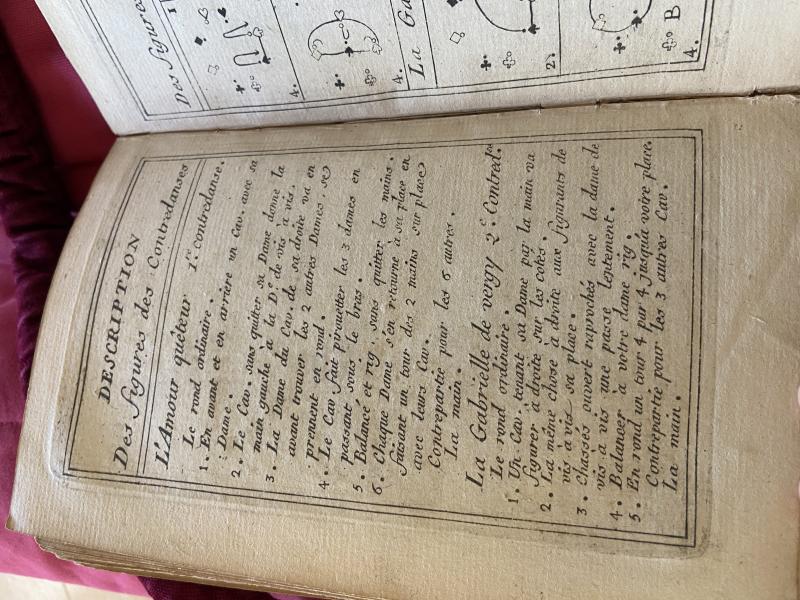 DESCRIPTION
Des figures des Contredanses
L'Amour quêteur 1.re contredanse.
Le rond ordinaire.
1. En avant et en arriere un Cav. avec sa
: Dame.
2. Le Cav. sans quitter sa Dame donne la
main gauche a la D.e de vis a vis.
3. La Dame du Cav. de sa droite va en
avant trouver les 2 autres Dames, se
prennent en rond.
4. Le Cav fait pirouetter les 3 dames en
passant sous le bras.
5. Balancé et rig. sans quitter les mains.
6. Chaque Dame s'en retourne à sa place en
faisant un tour des 2 mains sur place
avec leurs Cav.
Contrepartie pour les 6 autres.
La main.
La Gabrielle de vergy 2.e Contred.se
Le rond ordinaire.
1. Un Cav. tenant sa Dame par la main va
figurer à droite sur les cotés.
2. La même chose à droite aux figurants de
vis à vis sa place.
3. Chassés ouvert raprochés avec la dame de
vis a vis une passe lentement.
4. Balancer à votre dame rig.
5. En rond un tour 4 par 4 jusqu'à votre place.
Contrepartie pour les 3 autres Cav.
La main.
Des figures
4.
4.
La Ga
2.
B
4.